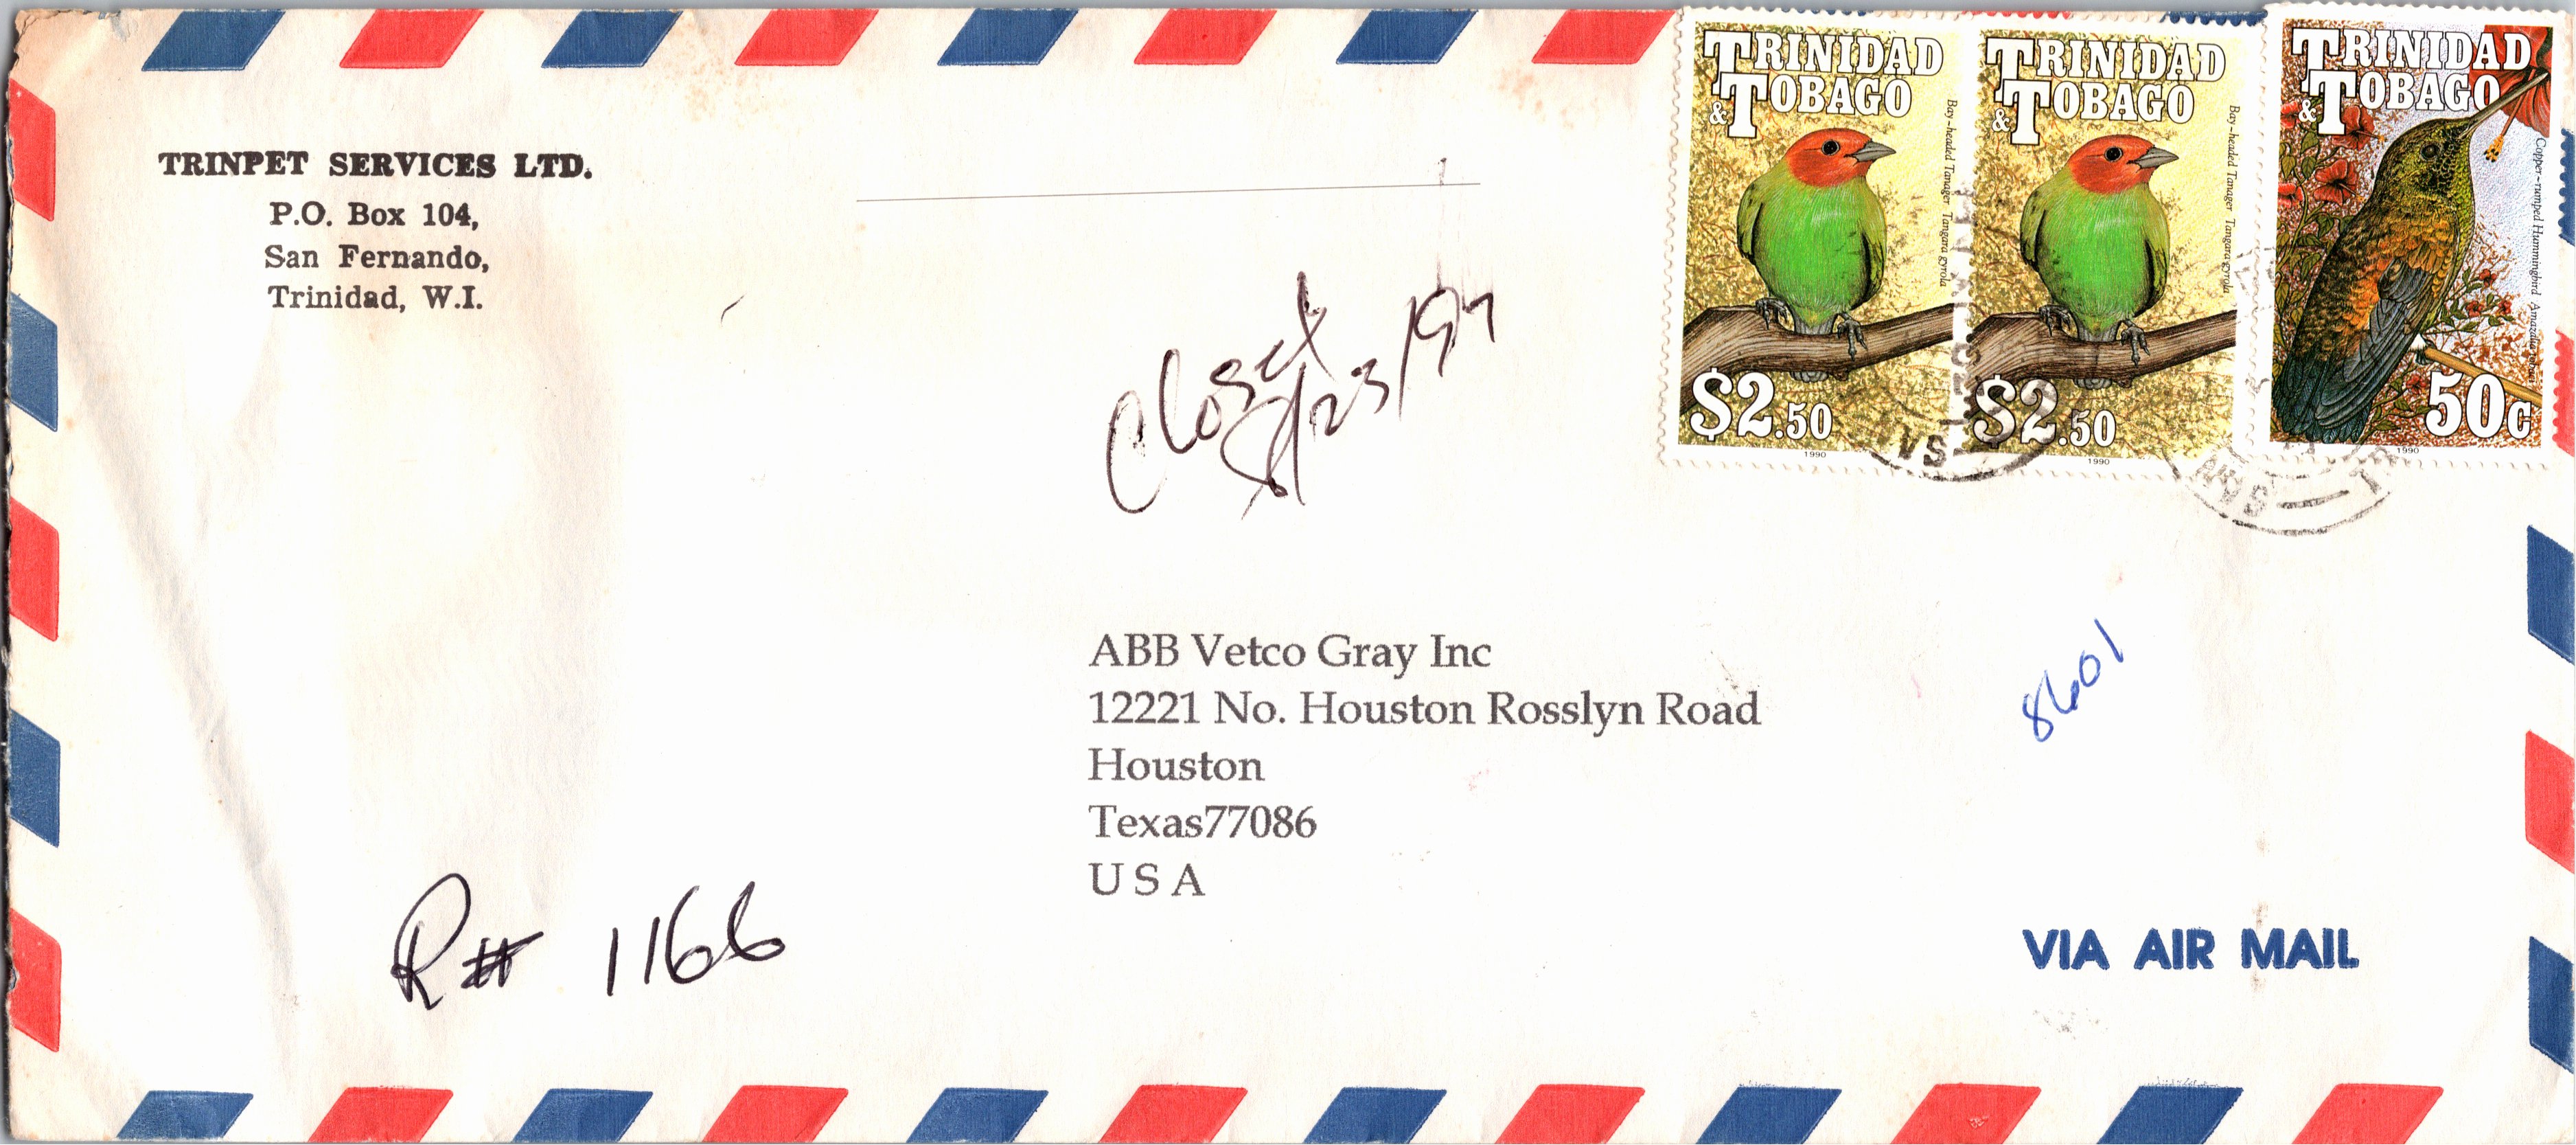 TRINPET SERVICES LTD.
P.O. Box 104,
San Fernando,
Trinidad, W.I.
TRINIDAD
& TOBAGO
Bay-headed Tanager Tangara gyrola
$2.50
1990
TRINIDAD
& TOBAGO
Bay-headed Tanager Tangara gyrola
$2.50
1990
TRINIDAD
& TOBAGO
Copper-rumped Hummingbird Amazilia
50c
1990
Closed
8/23/94
ABB Vetco Gray Inc
12221 No. Houston Rosslyn Road
Houston
Texas77086
U S A
8601
R# 1166
VIA AIR MAIL